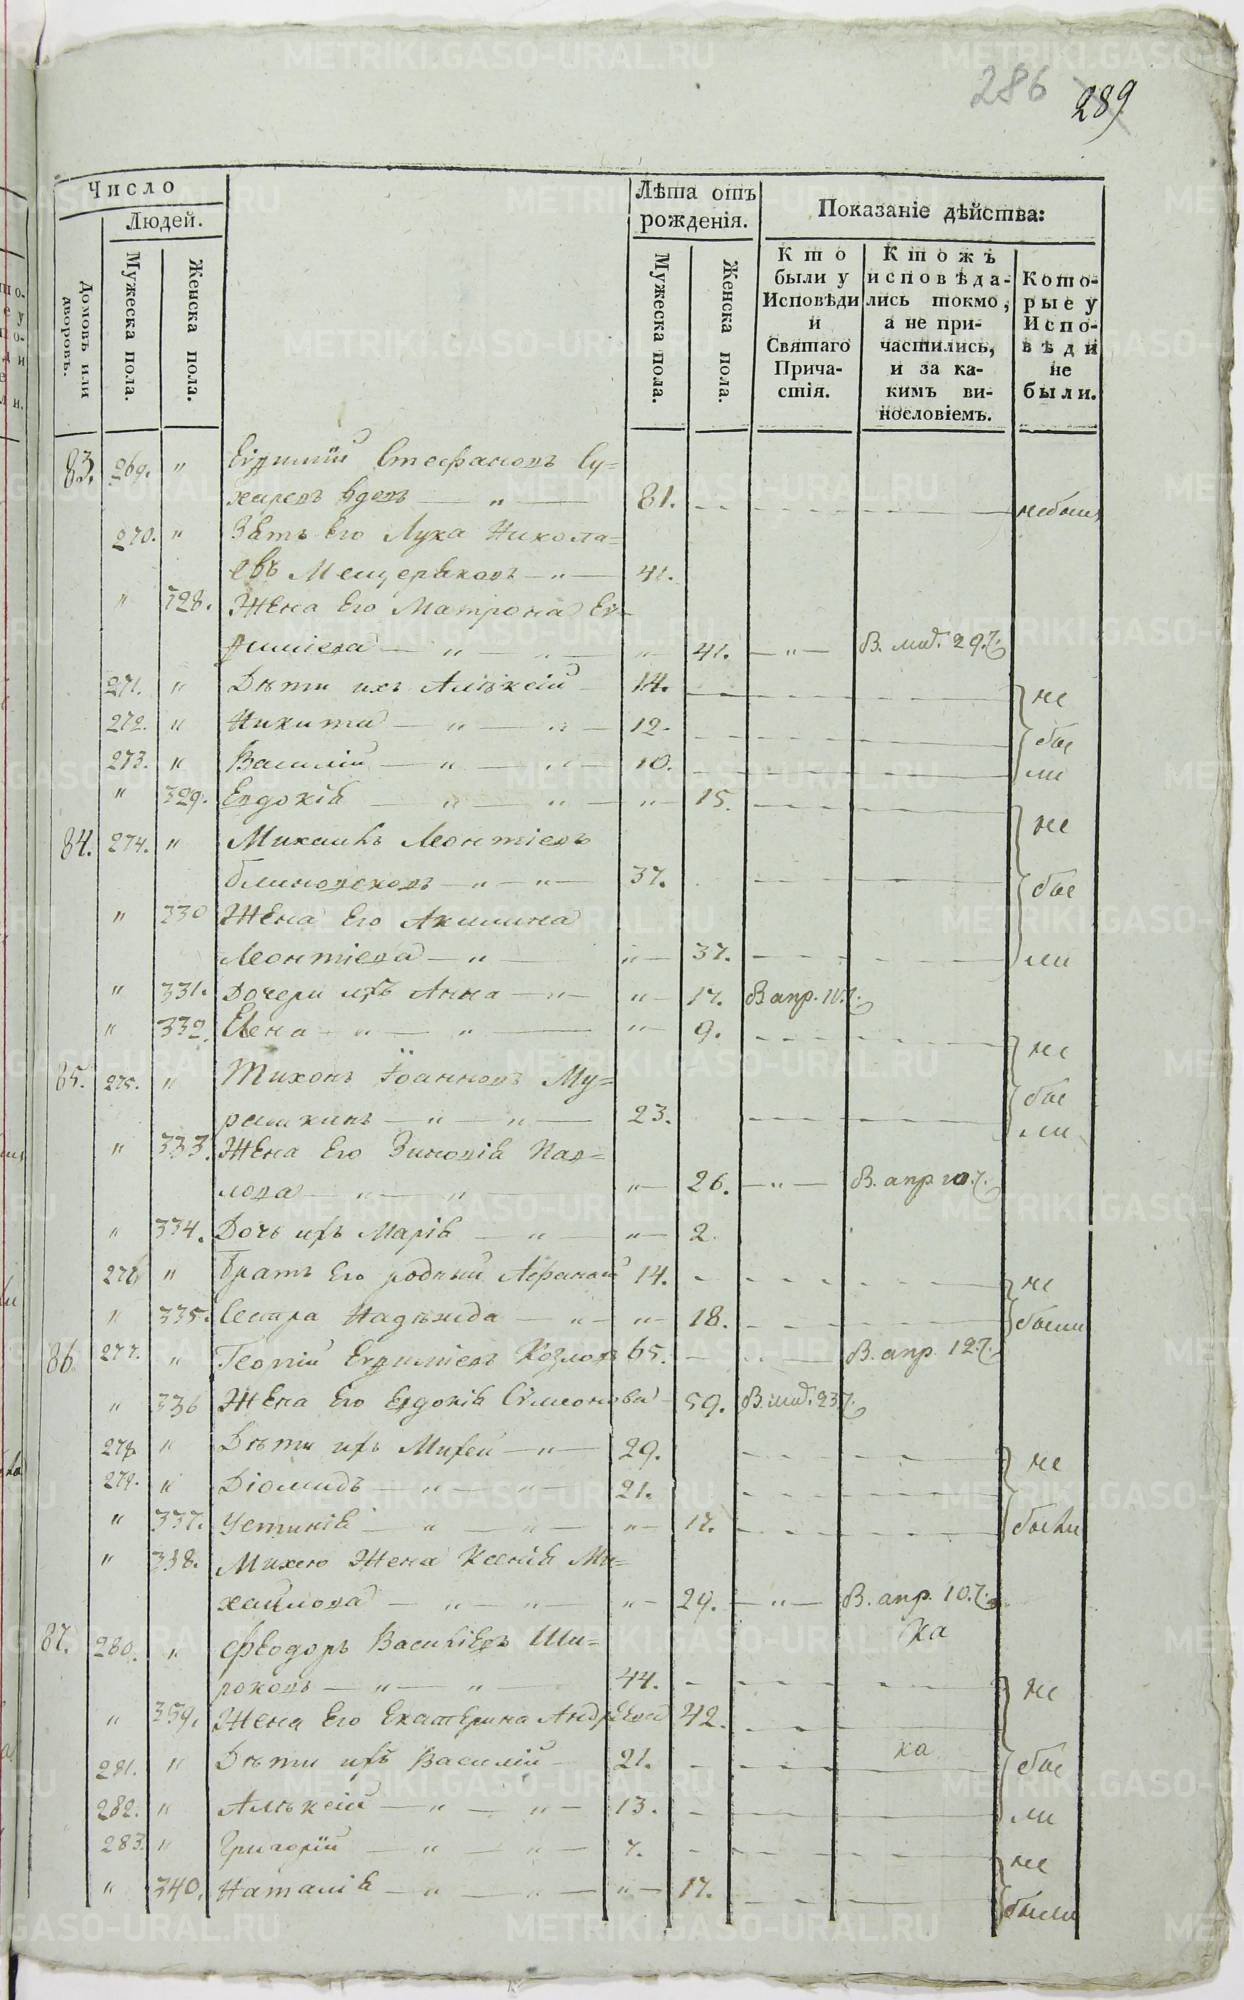 286 289
Число
Людей.
Домовъ или дворовъ.
Мужеска пола.
Женска пола.
Лѣта отъ рожденія.
Мужеска пола.
Женска пола.
Показаніе дѣйства:
Кто были у Исповѣди и Святаго Причастія.
Ктожъ исповѣдались токмо, а не причастились, и за какимъ винословіемъ.
Которые у Исповѣди не были.
83. 269. " Евфимій Стефановъ Су=
харевъ вдовъ — " — 81. небыл
270. " Зять Его Лука Никола=
евъ Мещеряковъ — " — 41.
" 328. Жена Его Матрона Ев=
фиміева — " — " — " — 41. — " —
271. " Дѣти ихъ Алѣксій 14. не
272. " Никита — " — " — 12. бы
273. " Василій — " — " — 10. ли
" 329. Евдокія — " — " — " — 15.
84. 274. " Михаилъ Леонтіевъ не
Блиновсковъ — " — " — 37. бы
" 330 Жена Его Акилина
Леонтіева — " — " — 37. ли
" 331. Дочери ихъ Анна — " — " — 17. В апр. 11.
" 332. Елена — " — " — " — 9. не
85. 275. " Тихонъ Іоанновъ Му= бы
рашкинъ — " — " — 23. ли
" 333. Жена Его Зиновія Пав=
лова — " — " — " — 26. — " — В. апр. 10.
" 334. Дочь ихъ Марія — " — " — 2.
276. " Братъ Его родный Афанасій 14. не
" 335. Сестра Надѣжда — " — " — 18. были
86. 277. " Евфиміевъ Козловъ 65. В. апр. 12.
" 336 Жена Его Евдокія Сѵмеонова 59.
278. " Дѣти ихъ Михей — " — 29. не
279. " Діомидъ — " — " — 21.
" 337. Устинія — " — " — " — 17. были
" 338. Михею Жена Ксенія Ми=
хайлова — " — " — " — 29. — " — В. апр. 10.
87. 280. " Феодоръ Василіевъ Ши= ка
роковъ — " — " — 44. не
" 339. Жена Его Екатерина Андреева 42.
281. " Дѣти ихъ Василій — 21. ка бы
282. " Алѣксій — " — " — 13. ли
283. " Григорій — " — " — 7. не
" 340. Наталія — " — " — " — 17. были